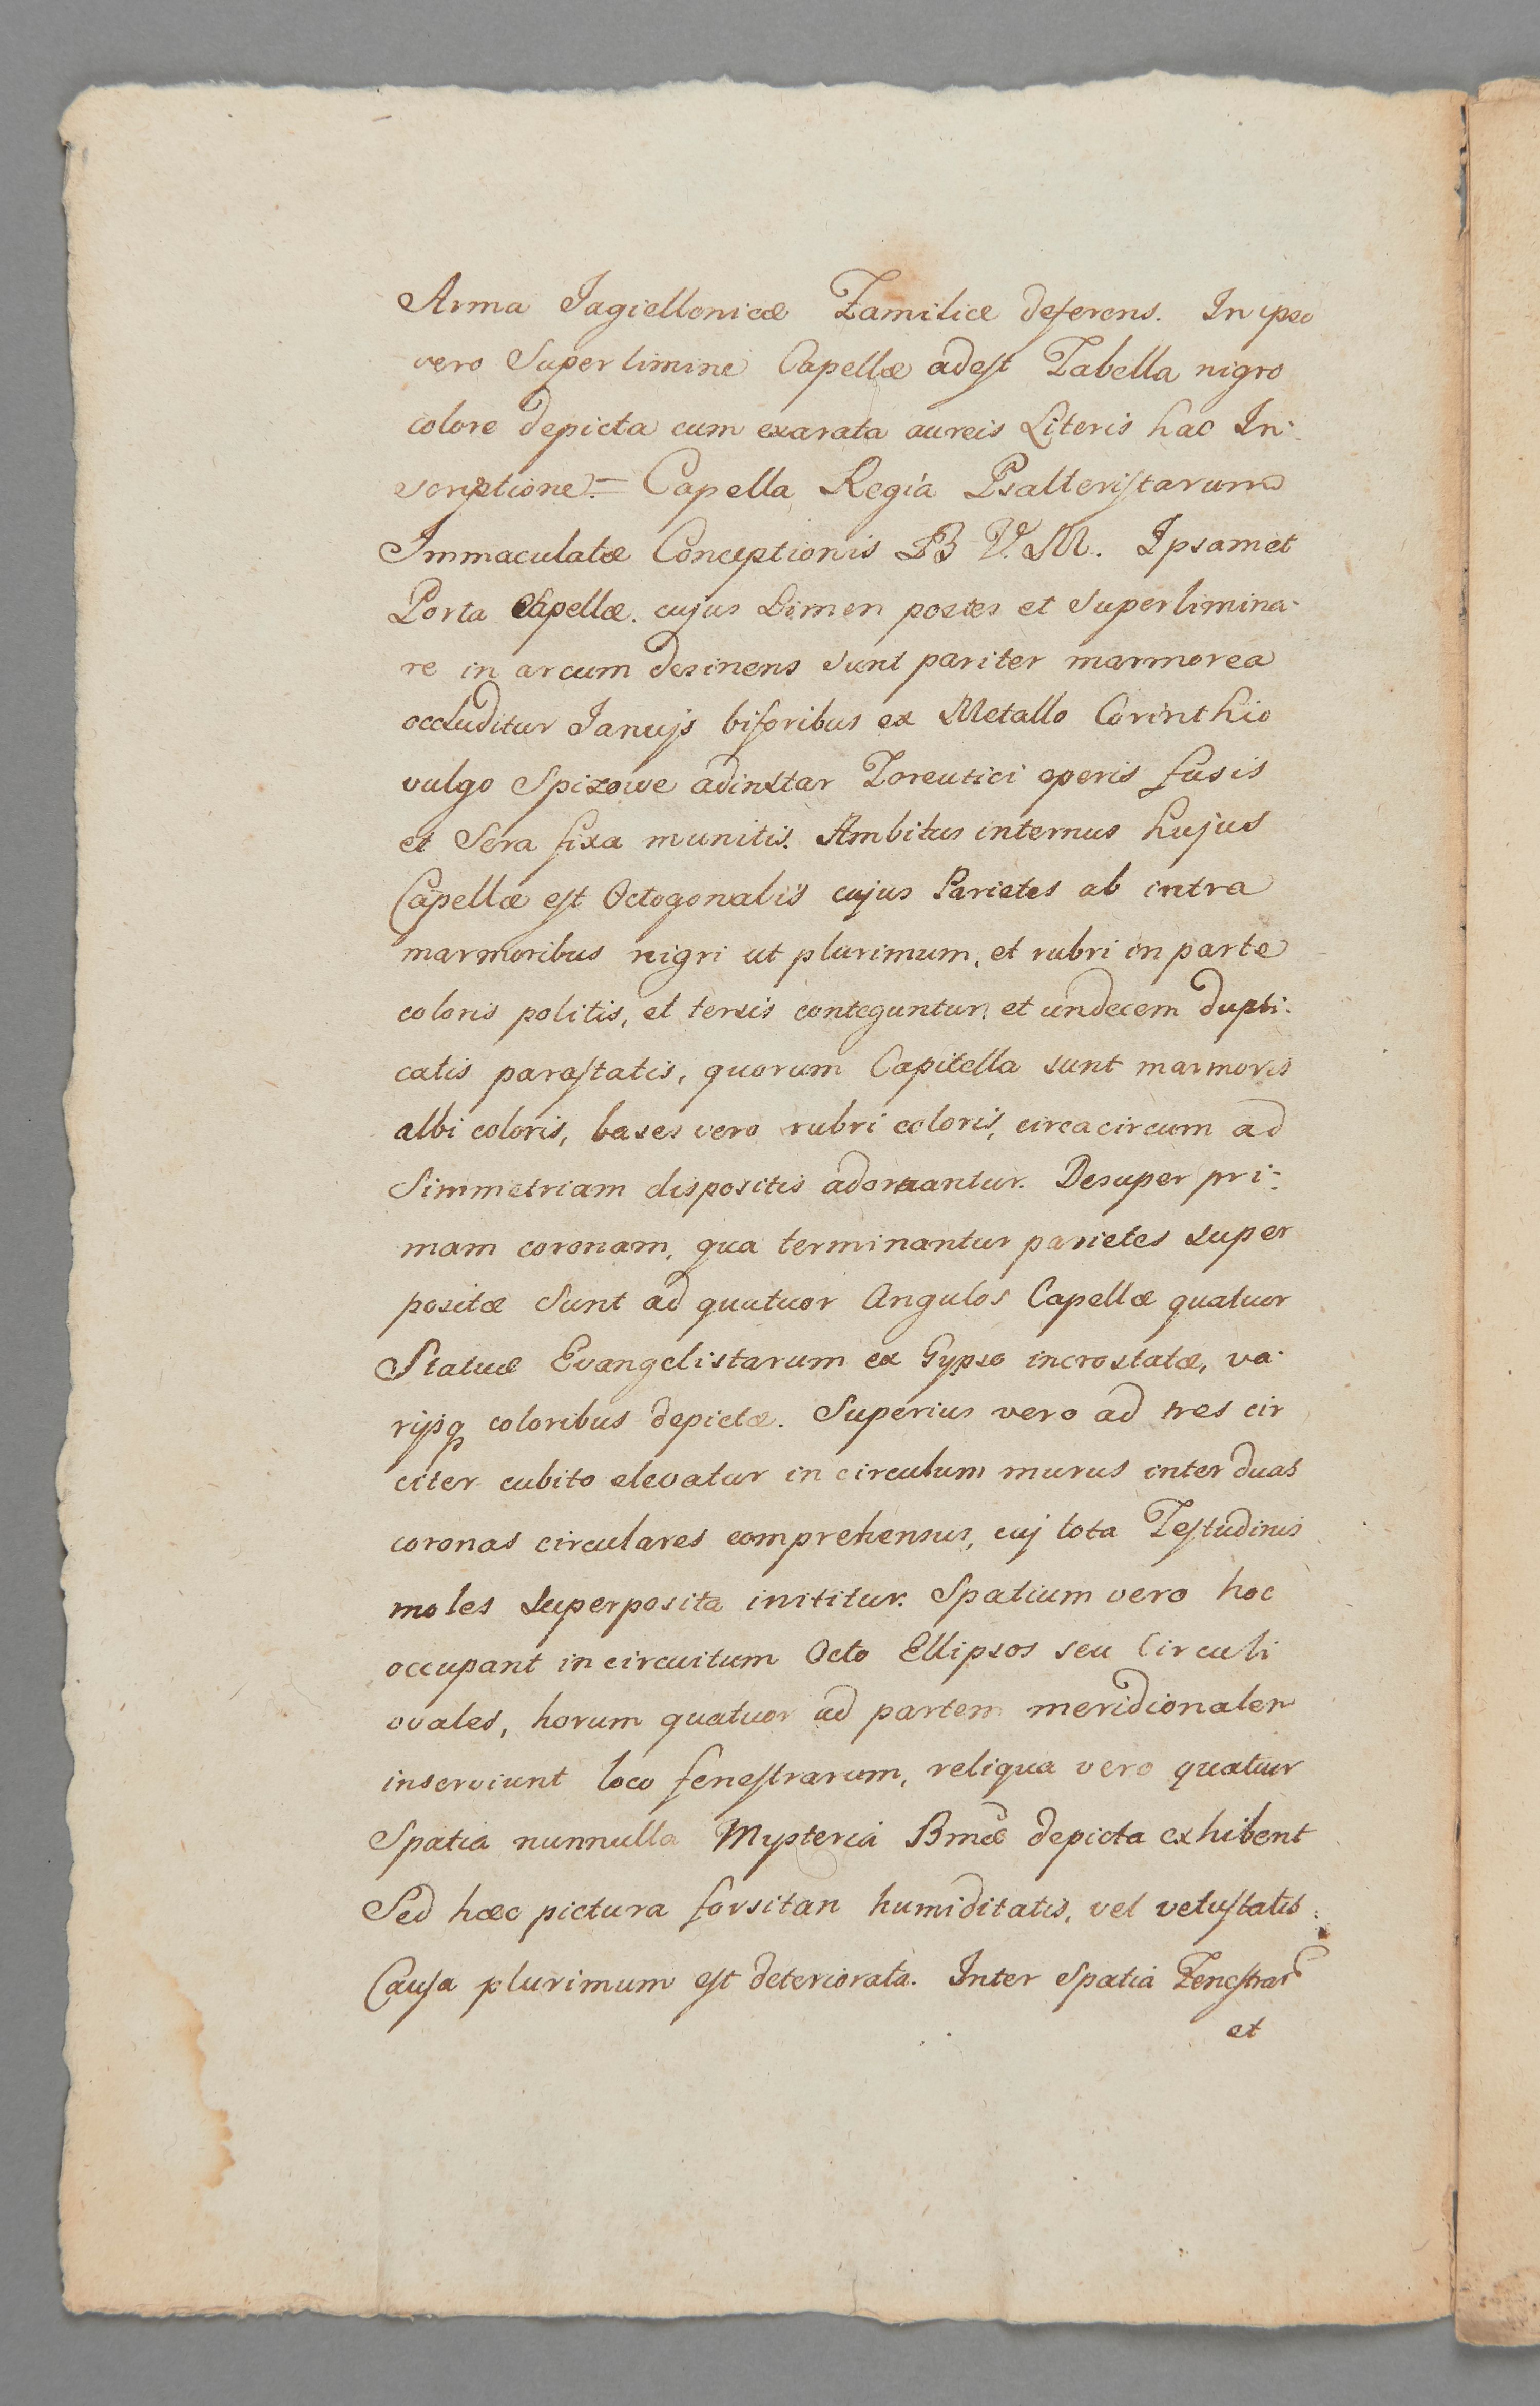 Arma Jagiellonicæ Familiæ deferens. In ipso
vero Superlimine Capellæ adest Tabella nigro
colore depicta cum exarata aureis Literis hac In-
scriptione.= Capella Regia Psalteristarum
Immaculatæ Conceptionis B V. M. Ipsamet
Porta Capellæ. cujus Limen postes et Superlimina-
re in arcum desinens sunt pariter marmorea
occluditur Janujs biforibus ex Metallo Corinthio
vulgo Spizowe adinstar Toreutici operis fusis
et Sera fixa munitis. Ambitus internus hujus
Capellæ est Octogonalis cujus Parietes ab intra
marmoribus nigri ut plurimum, et rubri in parte
coloris politis, et tersis conteguntur, et undecem dupli-
catis parastatis, quorum Capitella sunt marmoris
albi coloris, bases vero rubri coloris, circacircum ad
Simmetriam dispositis adornantur. Desuper pri-
mam coronam, qua terminantur parietes super
positæ Sunt ad quatuor Angulos Capellæ quatuor
Statuæ Evangelistarum ex Gypso incrostatæ, va-
rijsq coloribus depictæ. Superius vero ad tres cir
citer cubito elevatur in circulum murus inter duas
coronas circulares comprehensus, cuj tota Testudinis
moles superposita inititur. Spatium vero hoc
occupant in circuitum Octo Ellipsos seu Circuli
ovales, horum quatuor ad partem meridionalem
inserviunt loco fenestrarum, reliqua vero quatuor
Spatia nunnulla Mysteria Bmæ depicta exhibent
Sed hæc pictura forsitan humiditatis, vel vetustatis
Causa plurimum est deteriorata. Inter Spatia Fenestrar
et